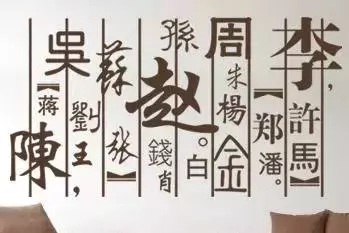 李，許馬
【郑潘。
周朱楊金
孫。白
赵錢肖
蘇張】
劉王，
吳【蒋陳